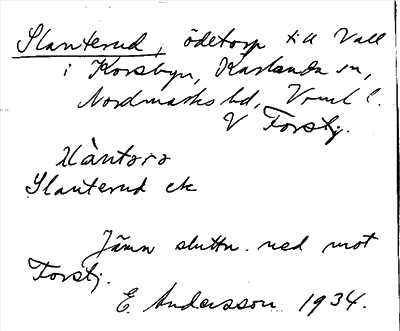 Slanterud, ödetorp till Vall
i Korsbyn, Karlanda sn,
Nordmarks hd, Vrml l.
V Forstj.
Slanterud ek
Jämn sluttn. ned mot
Forstj.
E. Andersson 1934.